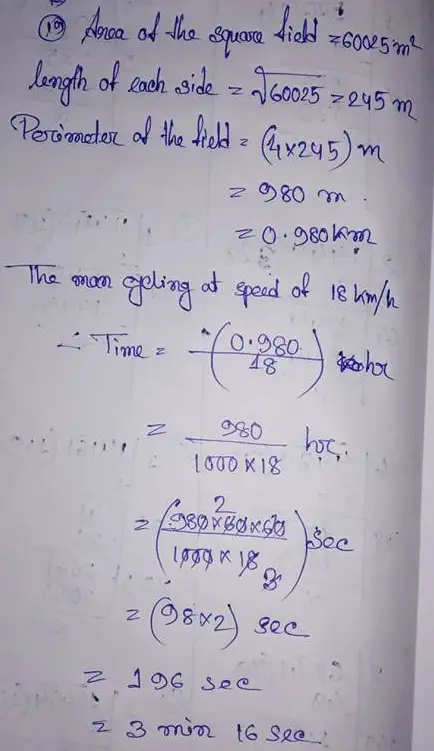 (19) Area of the square field = 60025 m²
length of each side = √60025 = 245 m
Perimeter of the field = (4×245) m
= 980 m.
= 0.980 km
The man cycling at speed of 18 km/h
∴ Time = (0.980/18) hr
= 980/(1000×18) hr.
= (980×60×60/(1000×18)) sec 2 3
= (98×2) sec
= 196 sec
= 3 min 16 sec.